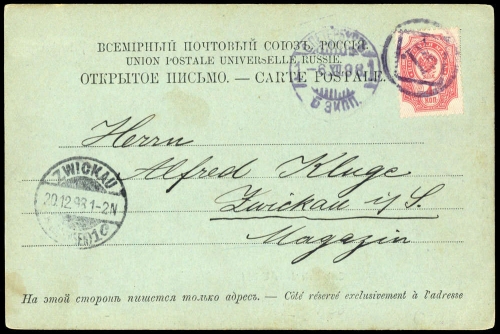 ВСЕМІРНЫЙ ПОЧТОВЫЙ СОЮЗЪ. РОССІЯ.
UNION POSTALE UNIVERSELLE. RUSSIE.
ОТКРЫТОЕ ПИСЬМО. — CARTE POSTALE.
КОП.
Herrn
Alfred Kluge
Zwickau i/S.
Magazin
ZWICKAU
20.12.98.1-2N
На этой сторонѣ пишется только адресъ. — Côté réservé exclusivement à l'adresse